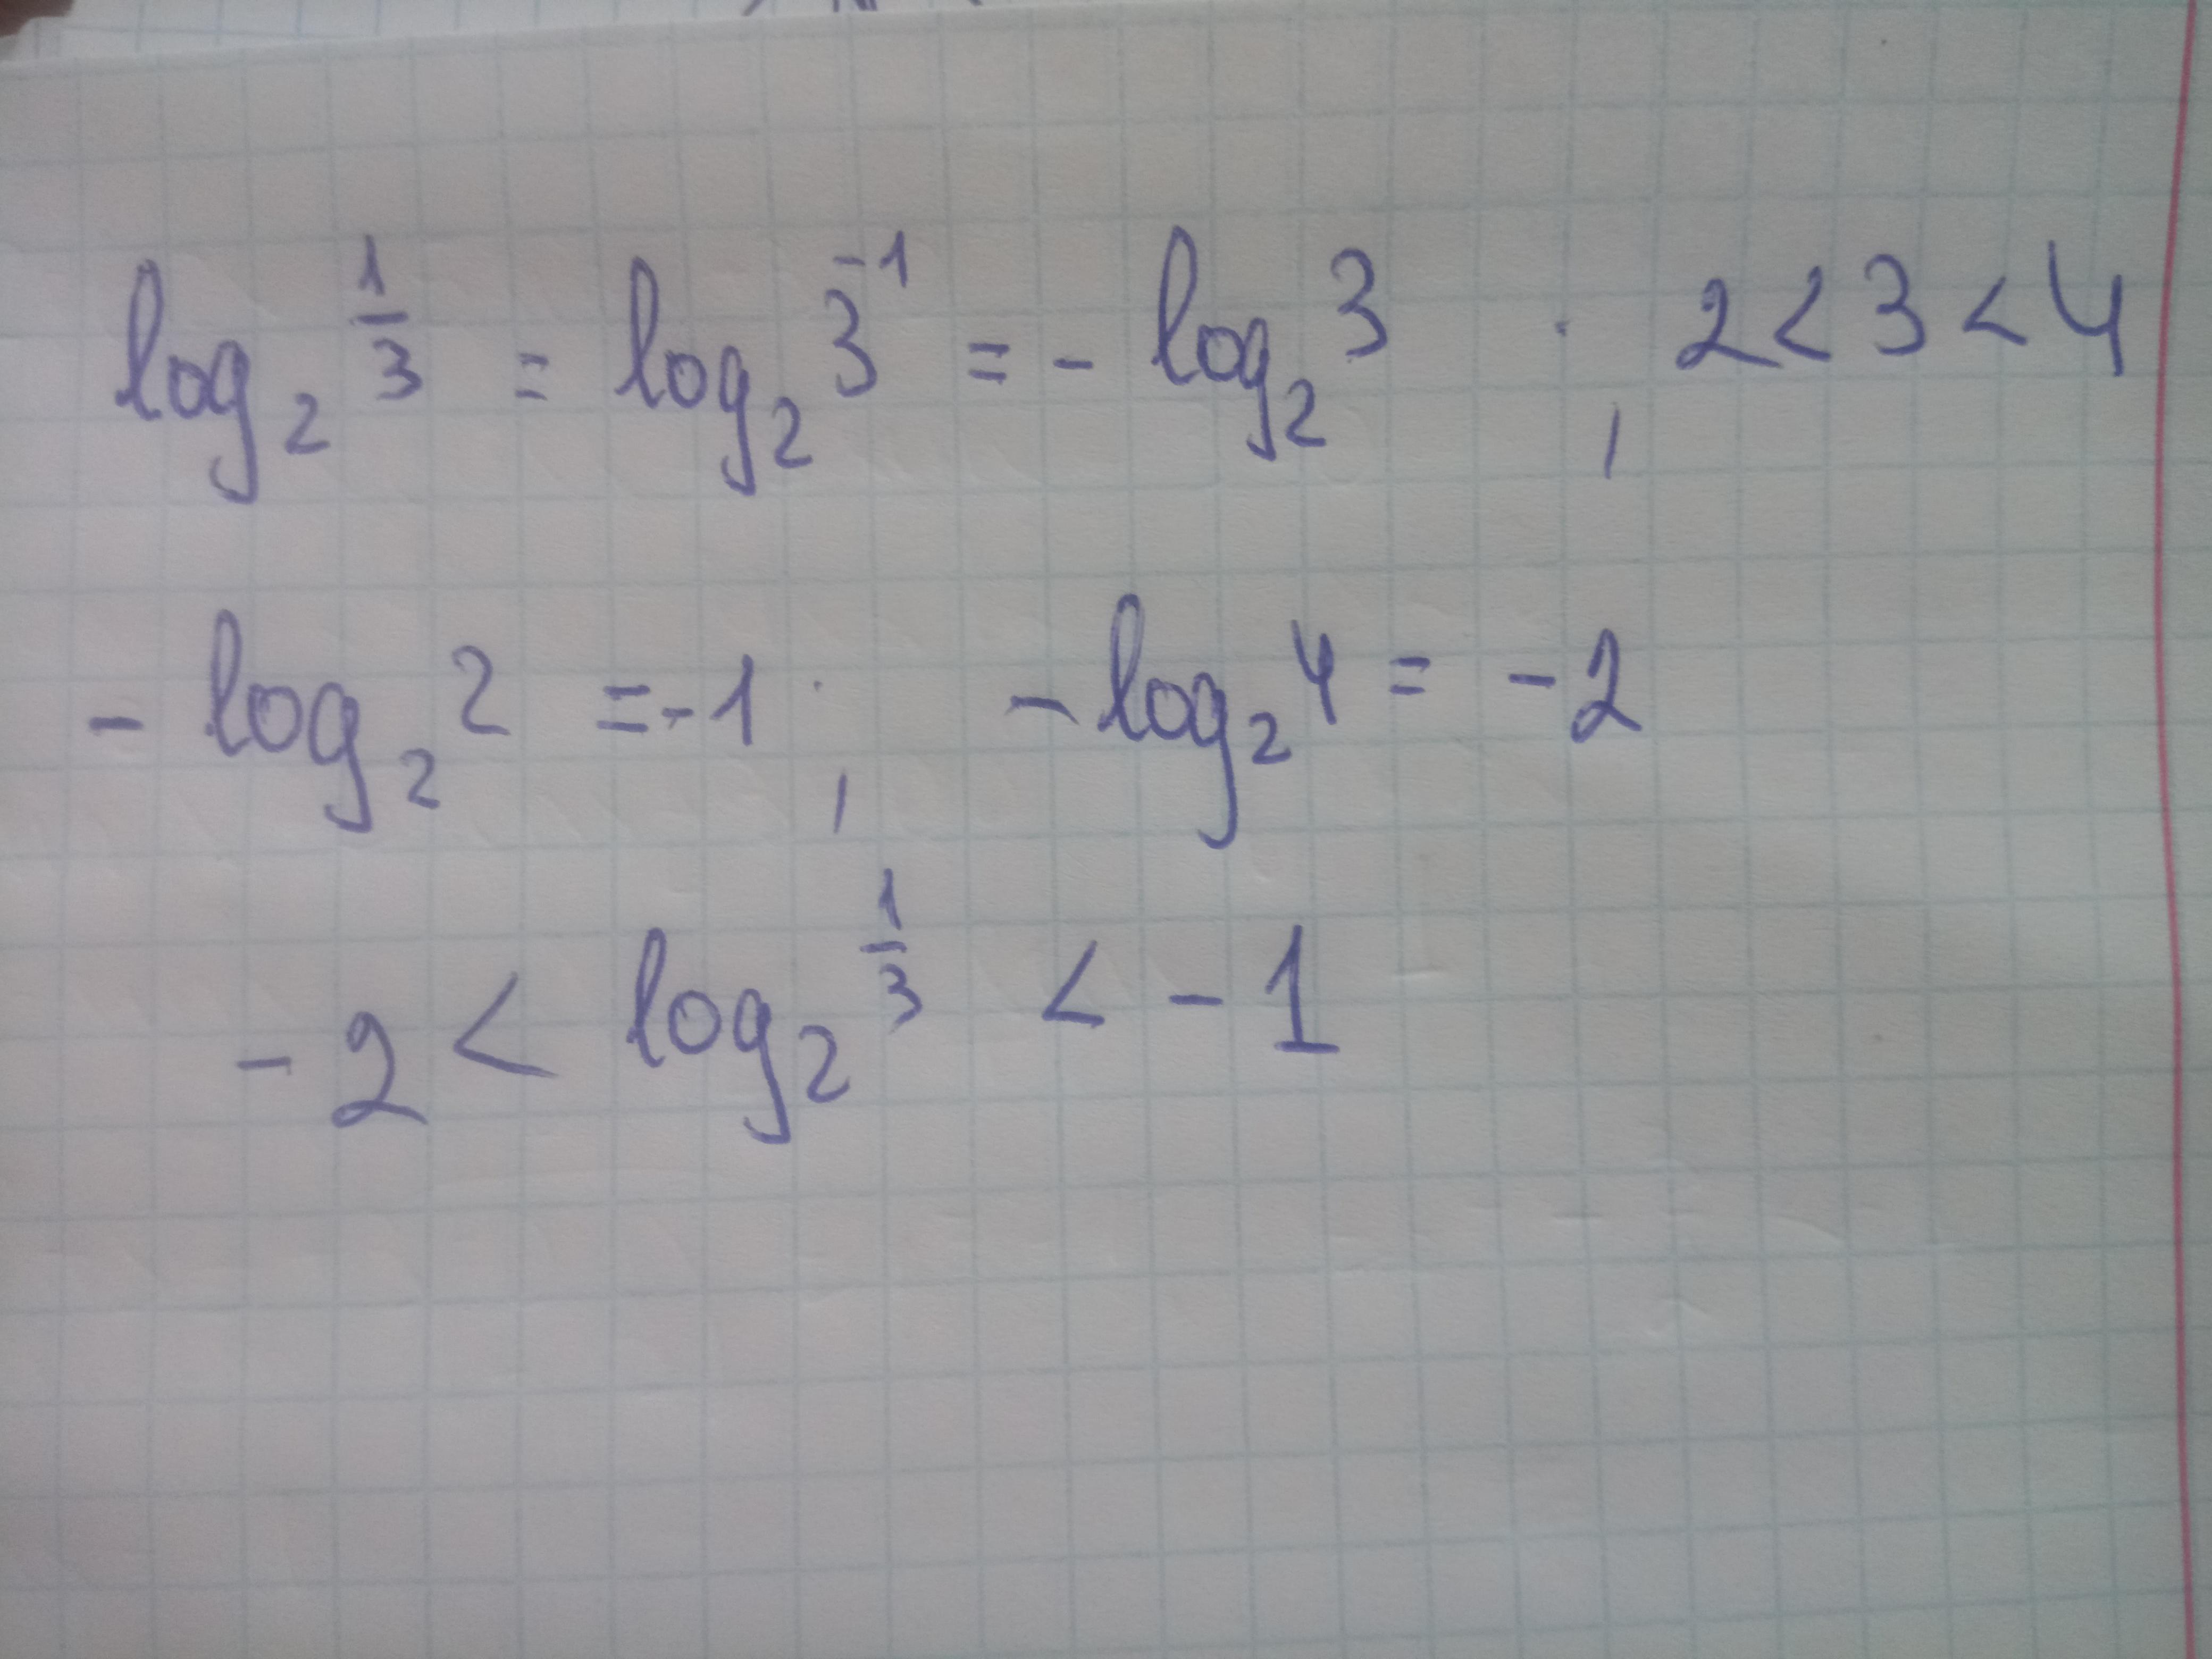 log₂ 1/3 = log₂ 3⁻¹ = - log₂ 3 ; 2 < 3 < 4
- log₂ 2 = -1 ; - log₂ 4 = -2
-2 < log₂ 1/3 < -1